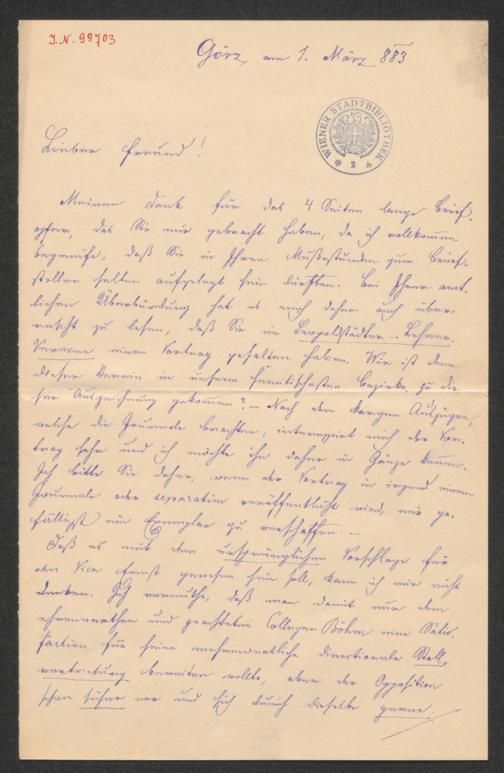 J.N. 99703
Görz, am 1. März 883
WIENER STADTBIBLIOTHEK
2
Lieber Freund!
Meinen Dank für das 4 Seiten lange Brief-
opfer, das Sie mir gebracht haben, da ich vollkommen
begreife, daß Sie in Ihren Mußestunden zum Brief-
stellen selten aufgelegt sein dürften. Bei Ihrer amt-
lichen Überbürdung hat es mich daher auch über-
rascht zu lesen, daß Sie im Leopoldstädter-Lehrer-
Vereine einen Vortrag gehalten haben. Wie ist denn
dieser Verein in unserem Bezirke zu die-
ser Auszeichnung gekommen? – Nach den kargen Auszügen,
welche die Journale brachten, interessiert mich der Vor-
trag sehr und ich möchte ihn daher in Gänze kennen.
Ich bitte Sie daher, wenn der Vortrag in irgend einem
Journale oder separatim veröffentlicht wird, mir ge-
fälligst ein Exemplar zu verschaffen. –
Daß es mit dem ursprünglichen Vorschlage für
den Vice Ernst gewesen sein soll, kann ich mir nicht
denken. Ich vermuthe, daß man damit nur dem
ehrenwerthen und geachteten Collegen Böhm eine Satis-
faction für seine mehrmonatliche directionale Stell-
vertretung bereiten wollte, aber der Opposition
schon sicher war und sich durch dieselbe gerne